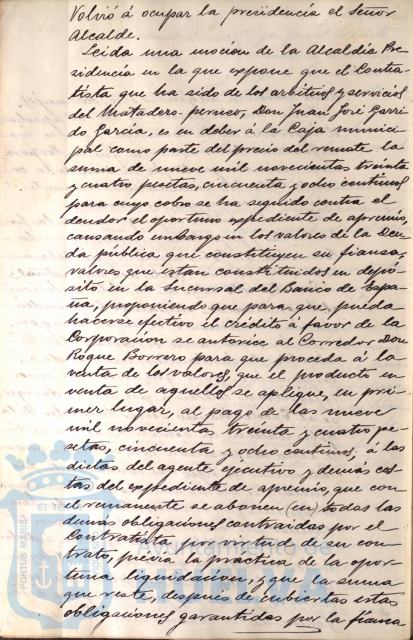 Volvió á ocupar la presidencia el Señor
Alcalde.
Leida una mocion de la Alcaldia Pre-
sidencia en la que expone que el Contra-
tista que ha sido de los arbitrios y servicios
del Matadero-perneo, Don Juan José Garri-
do García, es en deber á la Caja munici-
pal como parte del precio del remate la
suma de nueve mil novecientas treinta
y cuatro pesetas, cincuenta y ocho centimos
para cuyo cobro se ha seguido contra el
deudor el oportuno expediente de apremio,
causando embargo en los valores de la Deu-
da publica que constituyen su fianza,
valores que estan constituidos en depó-
sito en la Sucursal del Banco de Espa-
ña, proponiendo que para que pueda
hacerse efectivo el crédito á favor de la
Corporacion se autorice al Corredor Don
Roque Borrero para que proceda á la
venta de los valores, que el producto en
venta de aquellos se aplique, en pri-
mer lugar, al pago de las nueve
mil novecientas treinta y cuatro pe-
setas, cincuenta y ocho centimos, á las
dietas del agente ejecutivo y demás cos-
tas del expediente de apremio, que con
el remanente se abonen (en) todas las
demas obligaciones contraidas por el
Contratista por virtud de su con-
trato, previa la practica de la opor-
tuna liquidacion, y que la suma
que reste, despues de cubiertas estas
obligaciones garantidas por la fianza
PORTUS MARIS
ET TE
Ayuntamiento de